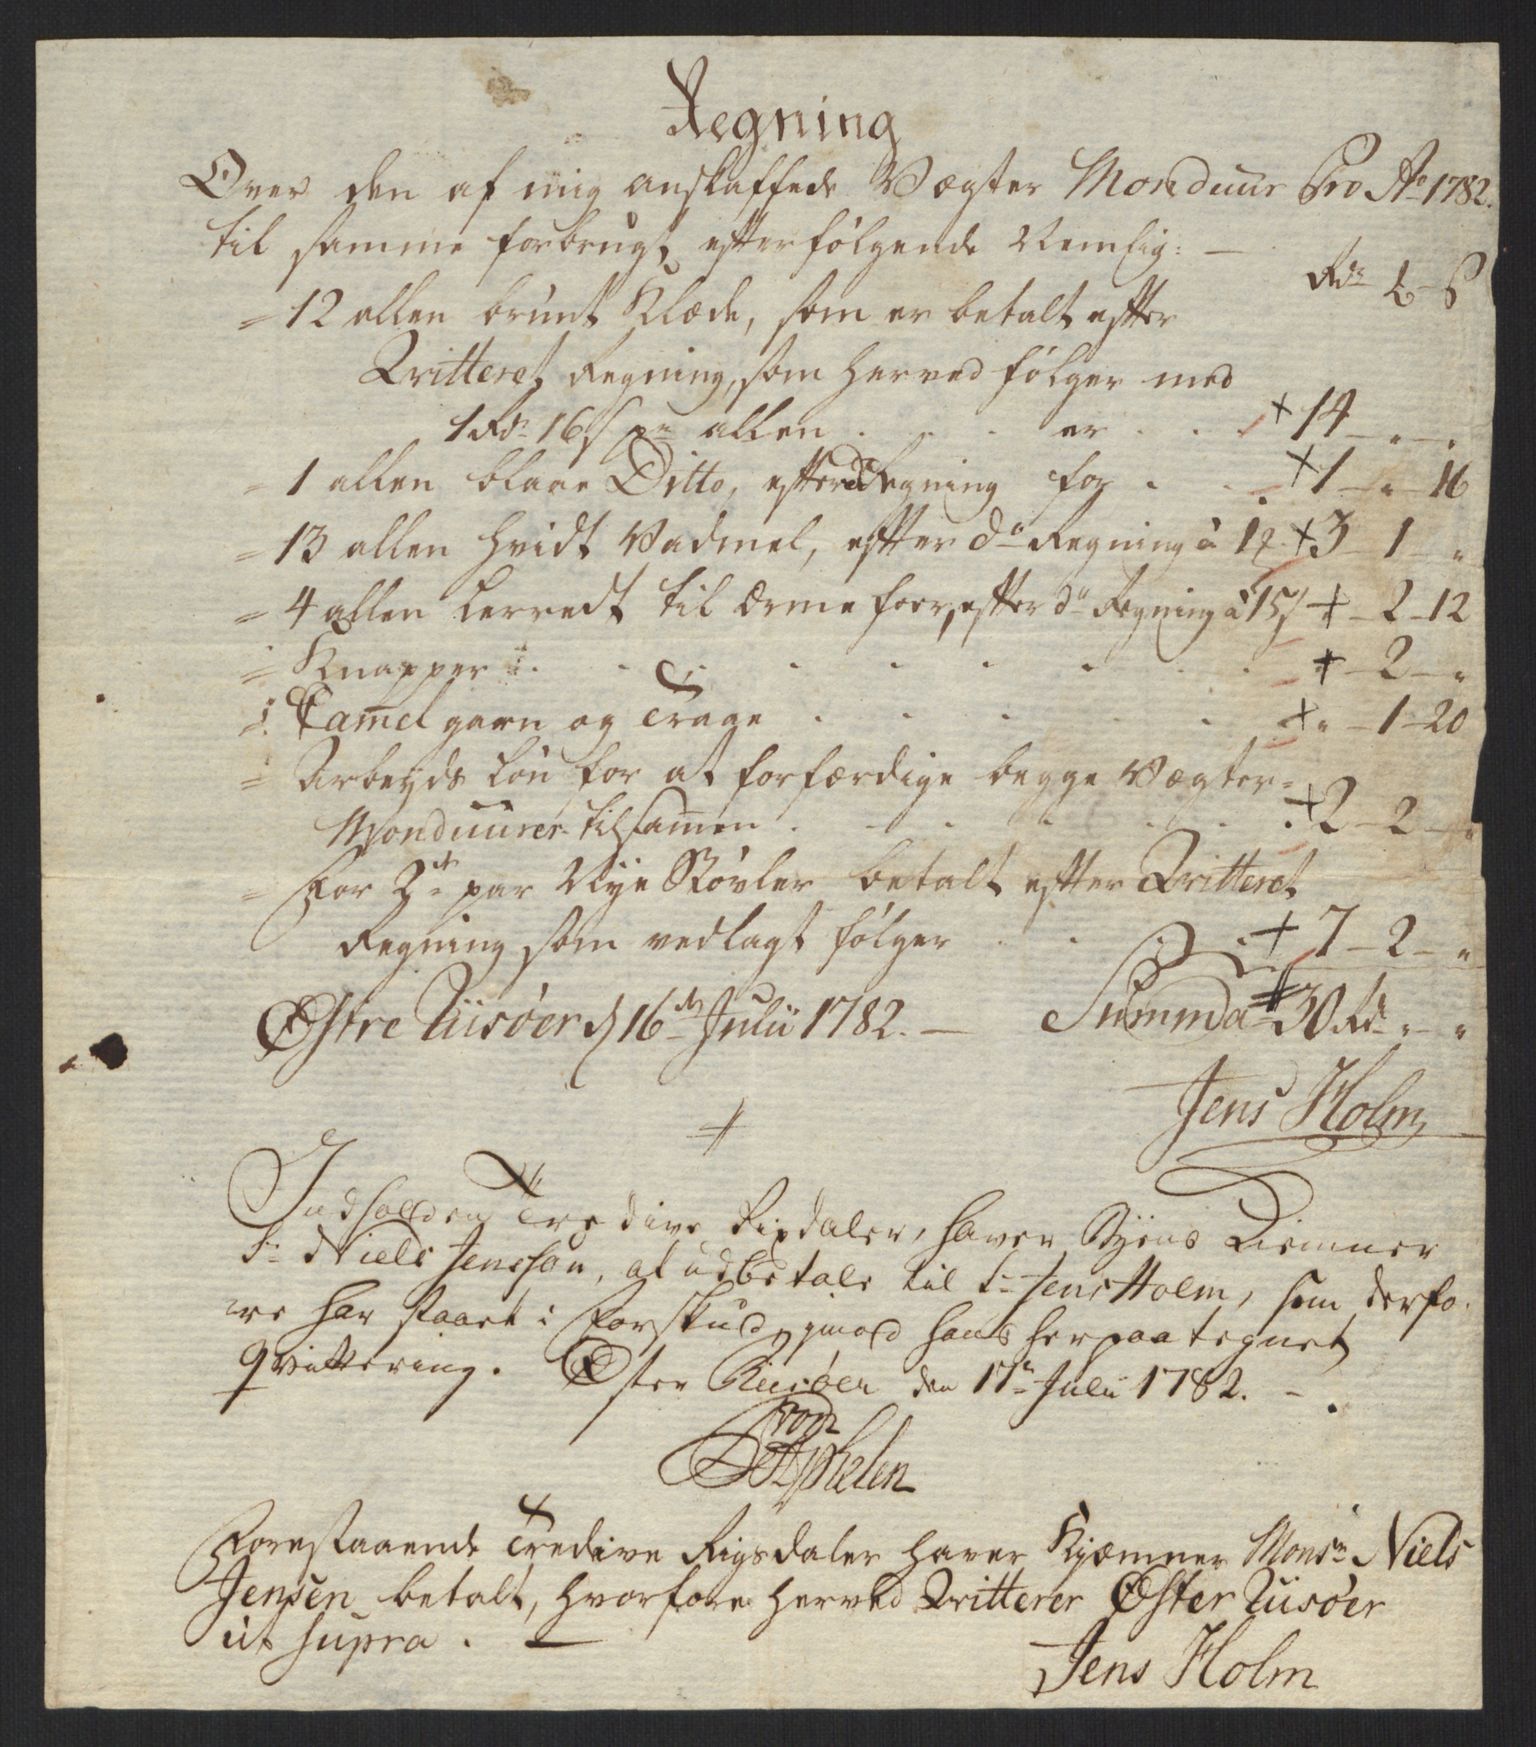 Regning
Over den af mig anskaffede Vægter Monduur Pro Ao 1782.
til samme forbrugt efterfølgende Nemlig: —
Rdr ₰ ß
= 12 allen brunt Klæde, som er betalt efter
Qvitteret Regning, som herved følger med
1 Rdr 16 s pr allen . . . er . . + 14 — " — "
= 1 allen blaae Ditto, efter do Regning for . . + 1 — " — 16
= 13 allen hvidt Vadmel, efter do Regning à 1 + 3 — 1 — "
= 4 allen Lerredt til Ærme foer, efter do Regning à 15 s + " — 2 — 12
= Knapper . . . . . . . . + — 2 — "
= Camel garn og Traae . . . . . + " — 1 — 20
= Arbeyds Løn for at forfærdige begge Vægter-
Monduurer tilsamen . . . . . . + 2 — 2 — "
= For 2de par Nye Støvler betalt efter Qvitteret
Regning som vedlagt følger . . . + 7 — 2 — "
Østre Riisøer d 16de Julii 1782. — Summa 30 Rdr " — "
Jens Holm
Indholden Tredive Rixdaler, haver Byens Kiemner
Sr Niels Jenssen, at udbetale til Sr Jens Holm, som derfo-
re har staaet i Forskud, imod hans herpaa tegnet
qvittering. Øster Riisøer den 17de Julii 1782. —
von
Aphelen
Forestaaende Tredive Rigsdaler haver Kjæmner Monsr Niels
Jensen betalt, hvorfore herved Qvitterer Øster Riisøer
ut supra. —
Jens Holm